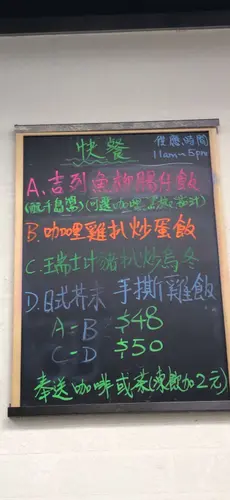 快餐
供應時間
11am~5pm
A.吉列魚柳腸仔飯
(配千島醬)(可選咖喱
B.咖喱雞扒炒蛋飯
C.瑞士汁豬扒炒烏冬
D.日式芥末 手撕雞飯
A-B $48
C-D $50
奉送咖啡或茶(凍飲加2元)